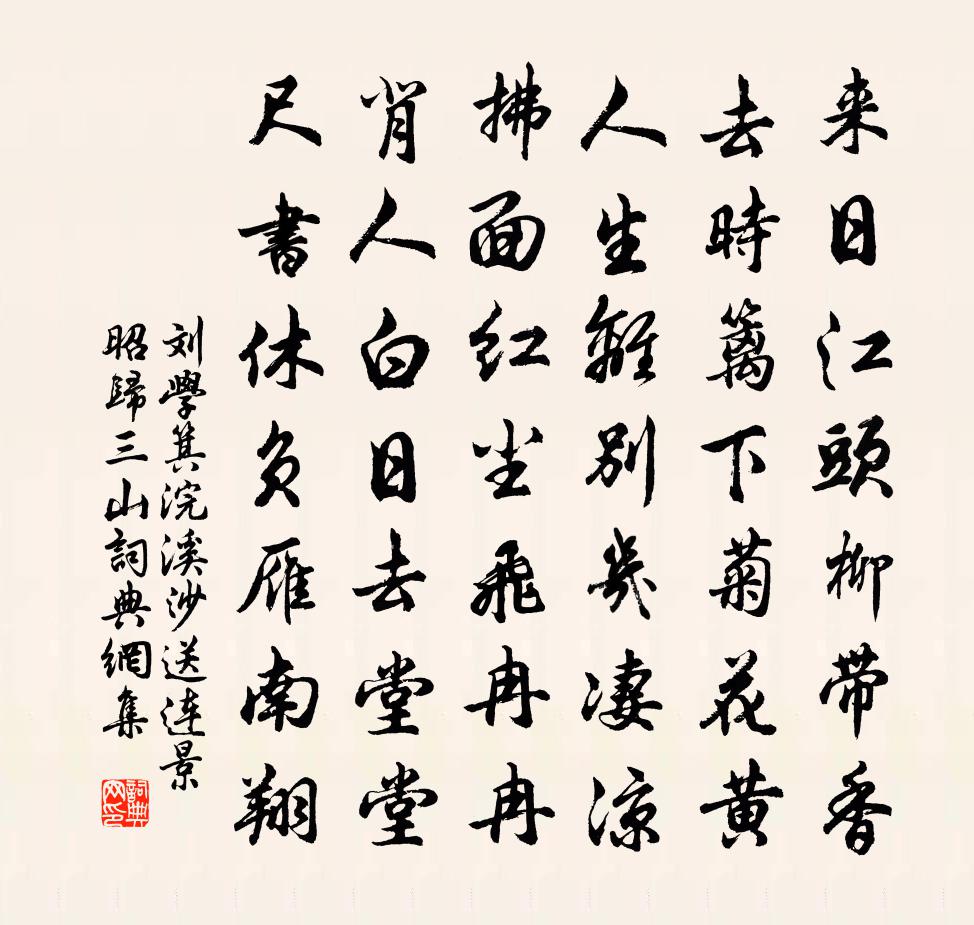 来日江頭柳帶香
去時籬下菊花黄
人生離別幾淒涼
拂面红尘飛冉冉
背人白日去堂堂
尺書休負雁南翔
刘學箕浣溪沙送连景
昭歸三山詞典網集
詞典
网印